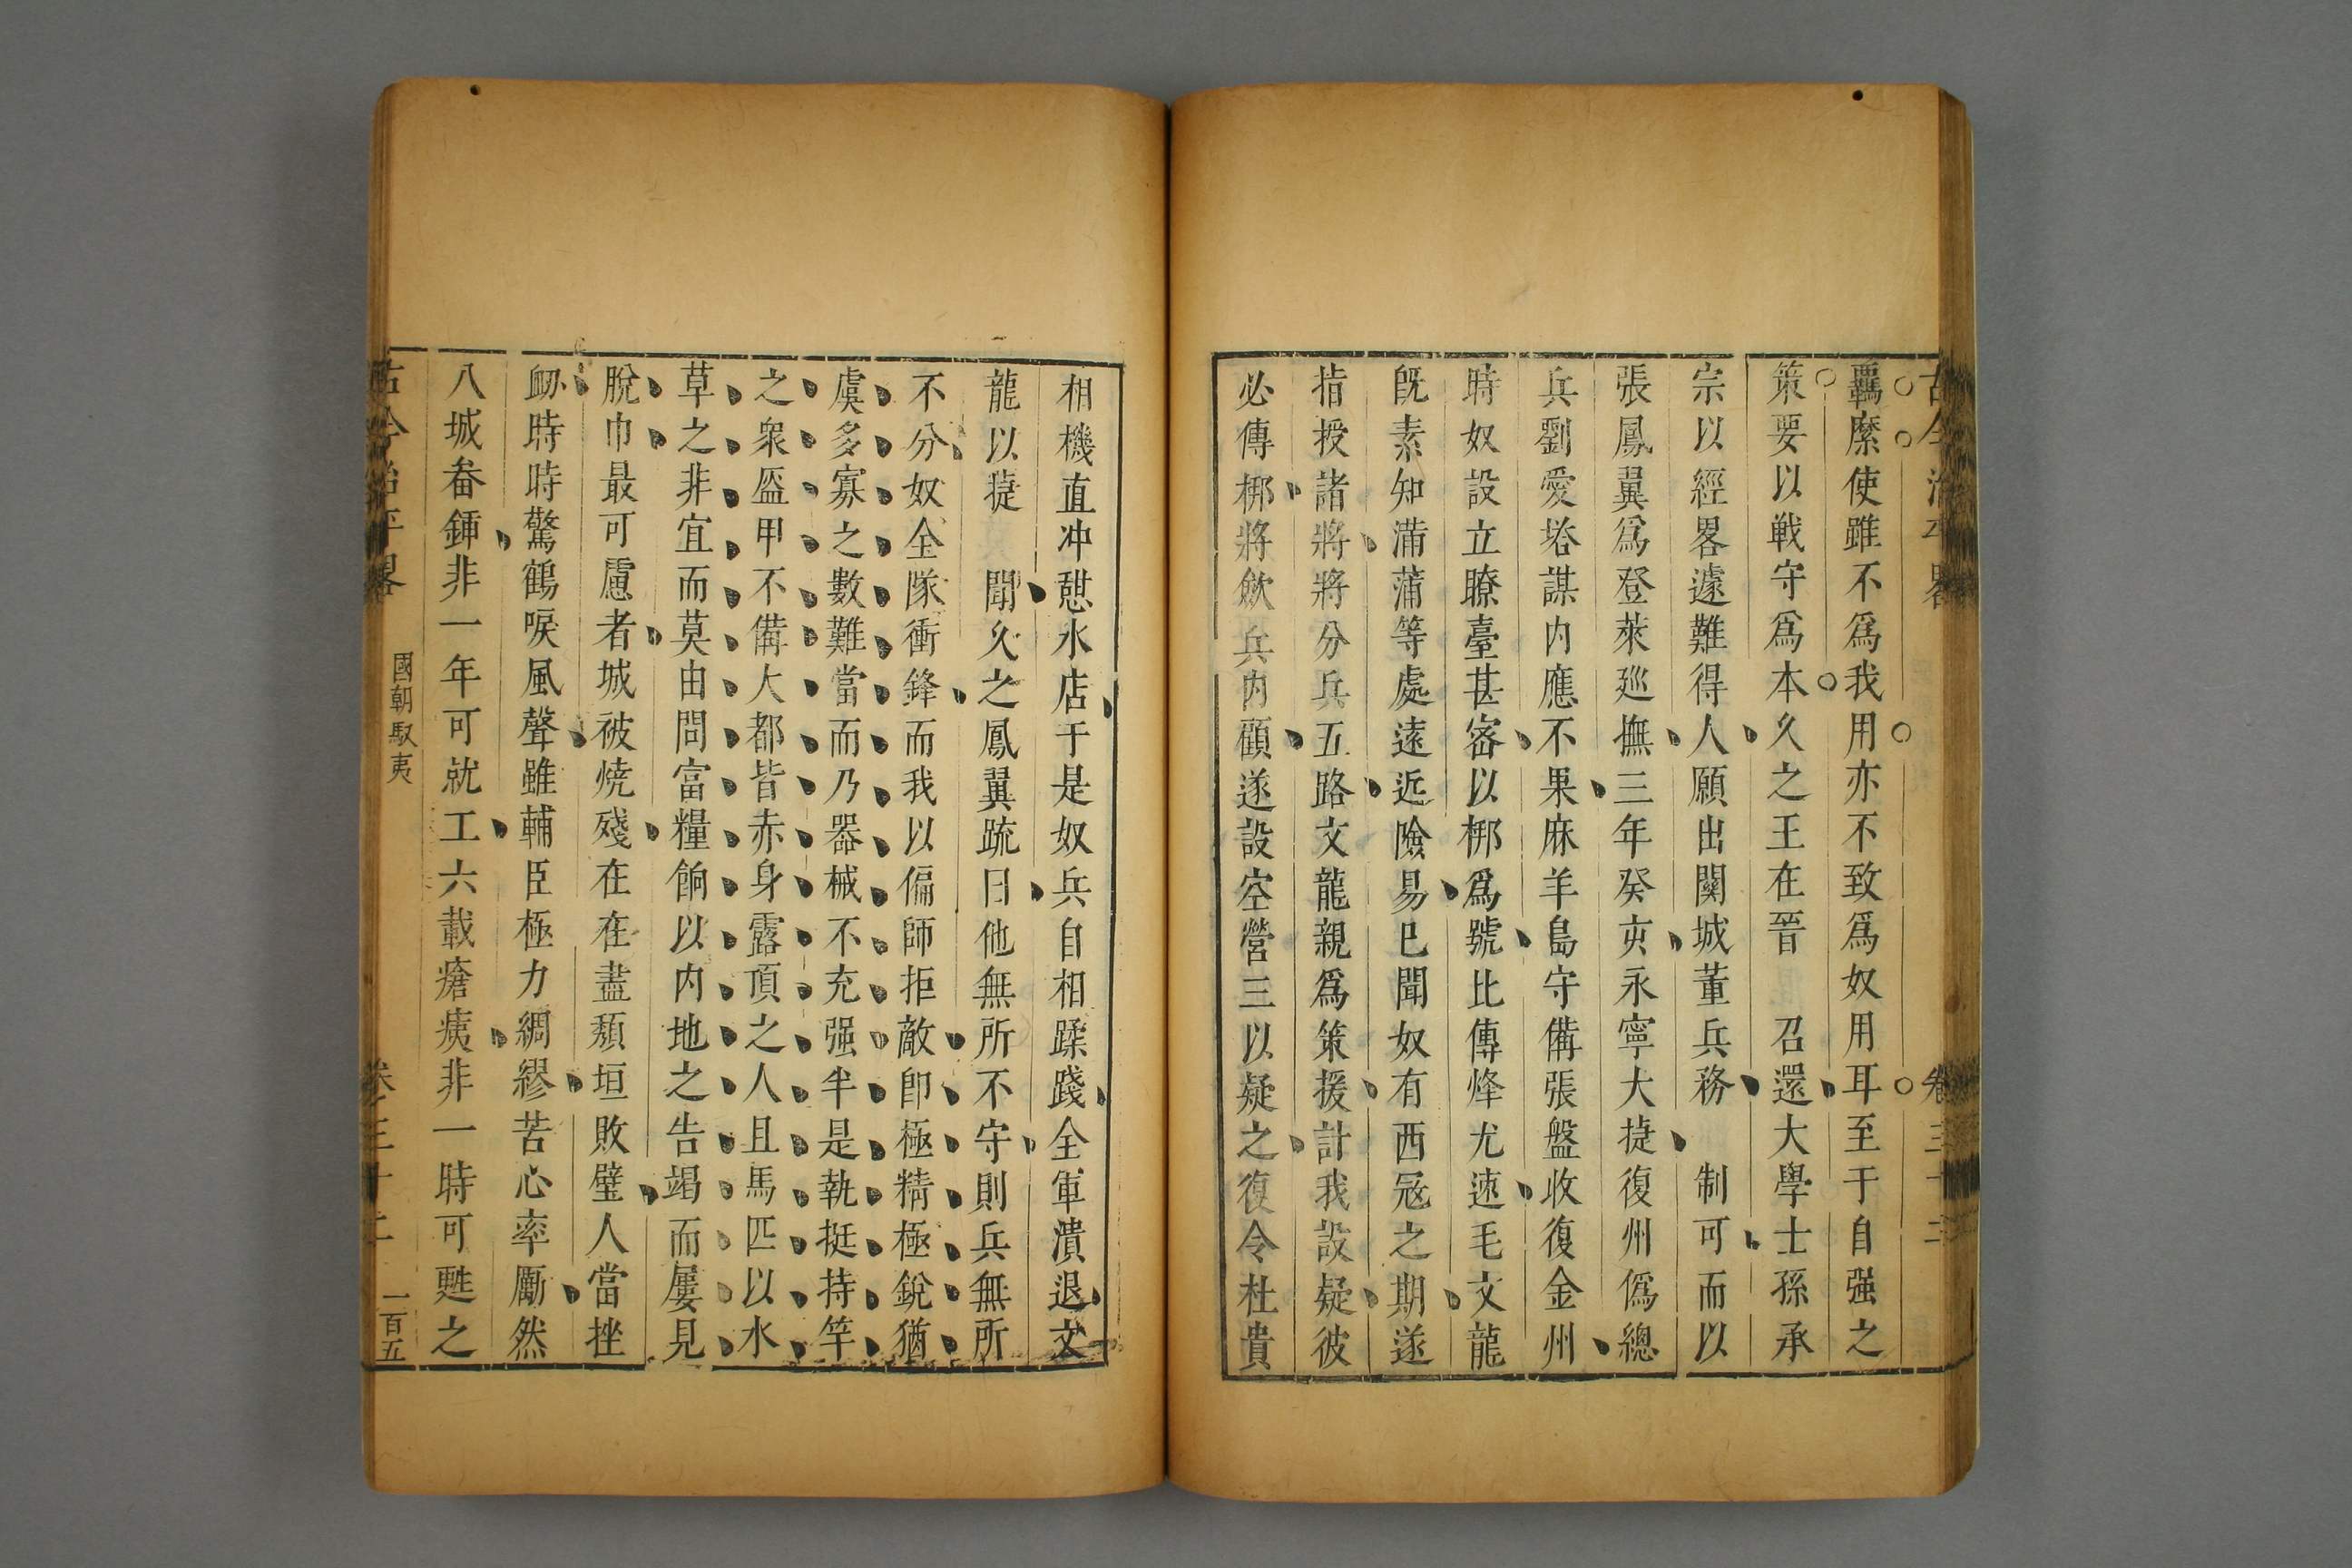 古今治平畧 卷三十二
羈縻使雖不爲我用亦不致爲奴用耳至于自强之
策要以戰守爲本久之王在晉 召還大學士孫承
宗以經畧遽難得人願出關城董兵務 制可而以
張鳳翼爲登萊廵撫三年癸亥永寧大捷復州僞總
兵劉愛塔謀内應不果麻羊島守備張盤收復金州
時奴設立瞭臺甚密以梆爲號比傳烽尤速毛文龍
旣素知滿蒲等處遠近險易巳聞奴有西冦之期遂
指授諸將將分兵五路文龍親爲策援計我設疑彼
必傳梆將歛兵内顧遂設空營三以疑之復令杜貴
相機直冲憇水店于是奴兵自相蹂踐全軍潰退文
龍以㨗 聞久之鳳翼疏曰他無所不守則兵無所
不分奴全隊衝鋒而我以偏師拒敵卽極精極銳猶
虞多寡之數難當而乃器械不充强半是執挺持竿
之衆盔甲不備大都皆赤身露頂之人且馬匹以水
草之非宜而莫由問富糧餉以内地之告竭而屢見
脫巾最可慮者城被燒殘在在盡頽垣敗壁人當挫
衂時時驚鶴唳風聲雖輔臣極力綢繆苦心率勵然
八城畚鍤非一年可就工六載瘡痍非一時可甦之
古今治平畧 國朝馭夷 卷三十二 一百五